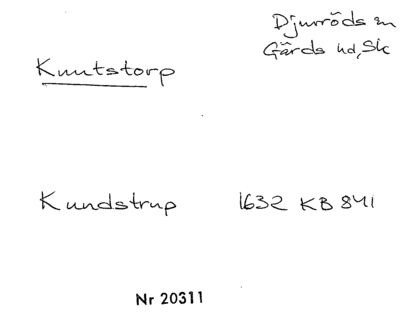 Djurröds sn
Gärds hd, Sk
Knutstorp
Kundstrup 1632 KB 841
Nr 20311